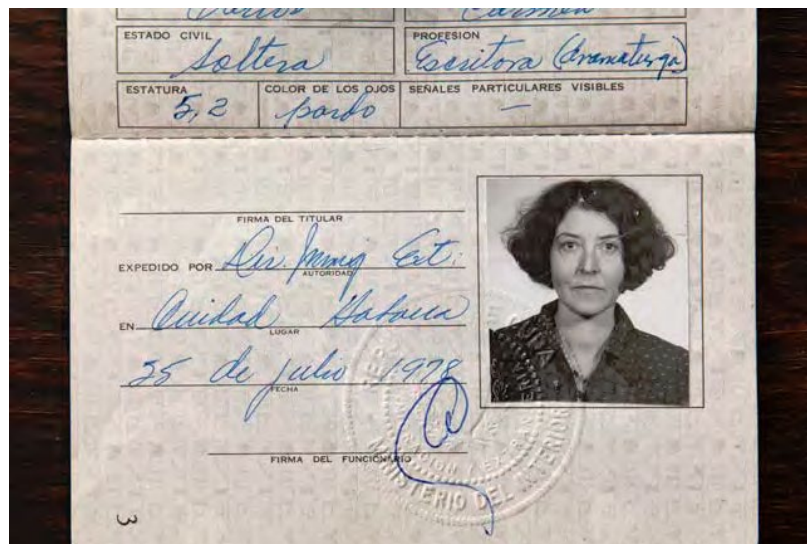 Carlos Carmen
ESTADO CIVIL PROFESION
Soltera Escritora (dramaturga)
ESTATURA COLOR DE LOS OJOS SEÑALES PARTICULARES VISIBLES
5,2 pardo —
FIRMA DEL TITULAR
EXPEDIDO POR Dir. Inmig Ext.
AUTORIDAD
EN Ciudad Habana
LUGAR
25 de julio 1978
FECHA
FIRMA DEL FUNCIONARIO
MINISTERIO DEL INTERIOR
3